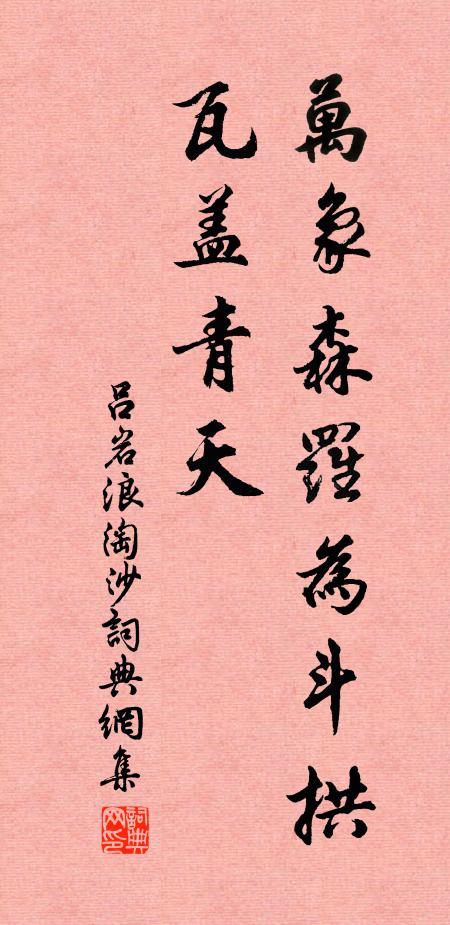 萬象森羅為斗拱
瓦盖青天
吕岩浪淘沙詞典網集
詞典网印